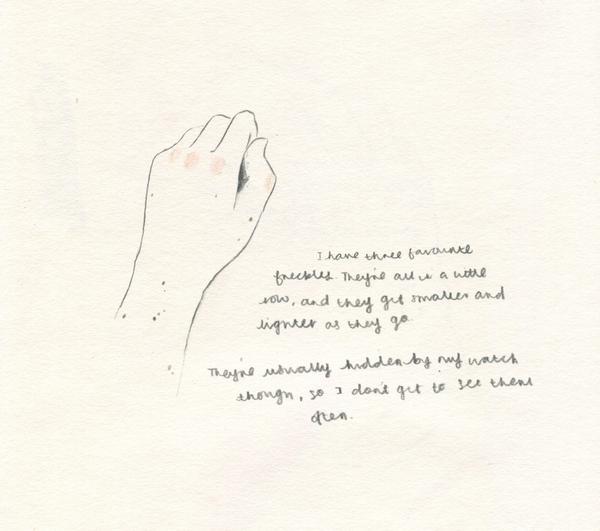 I have three favourite
freckles. They're all in a little
row, and they get smaller and
lighter as they go.
They're usually hidden by my watch
though, so I don't get to see them
often.